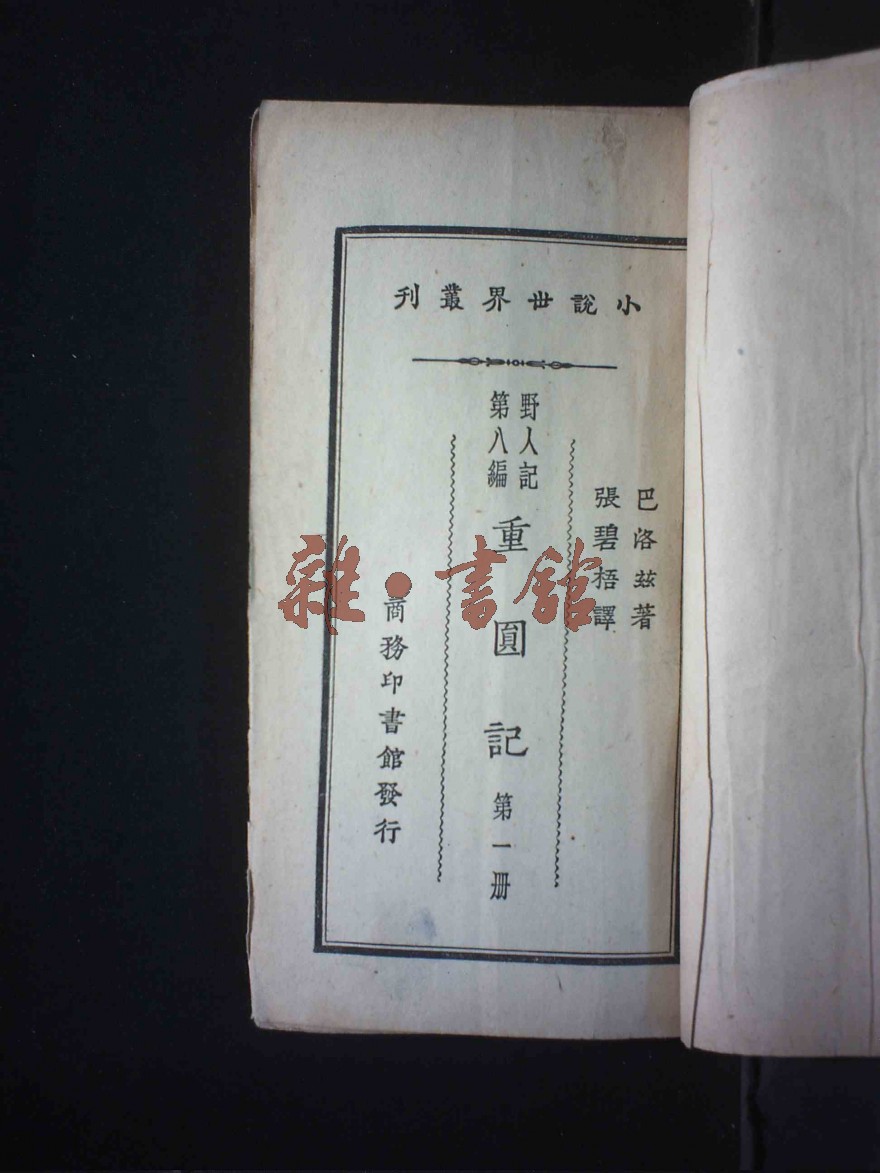 小說世界叢刊
巴洛兹著
張碧梧譯
野人記
第八編
重圓記 第一册
商務印書館發行
雜·書館